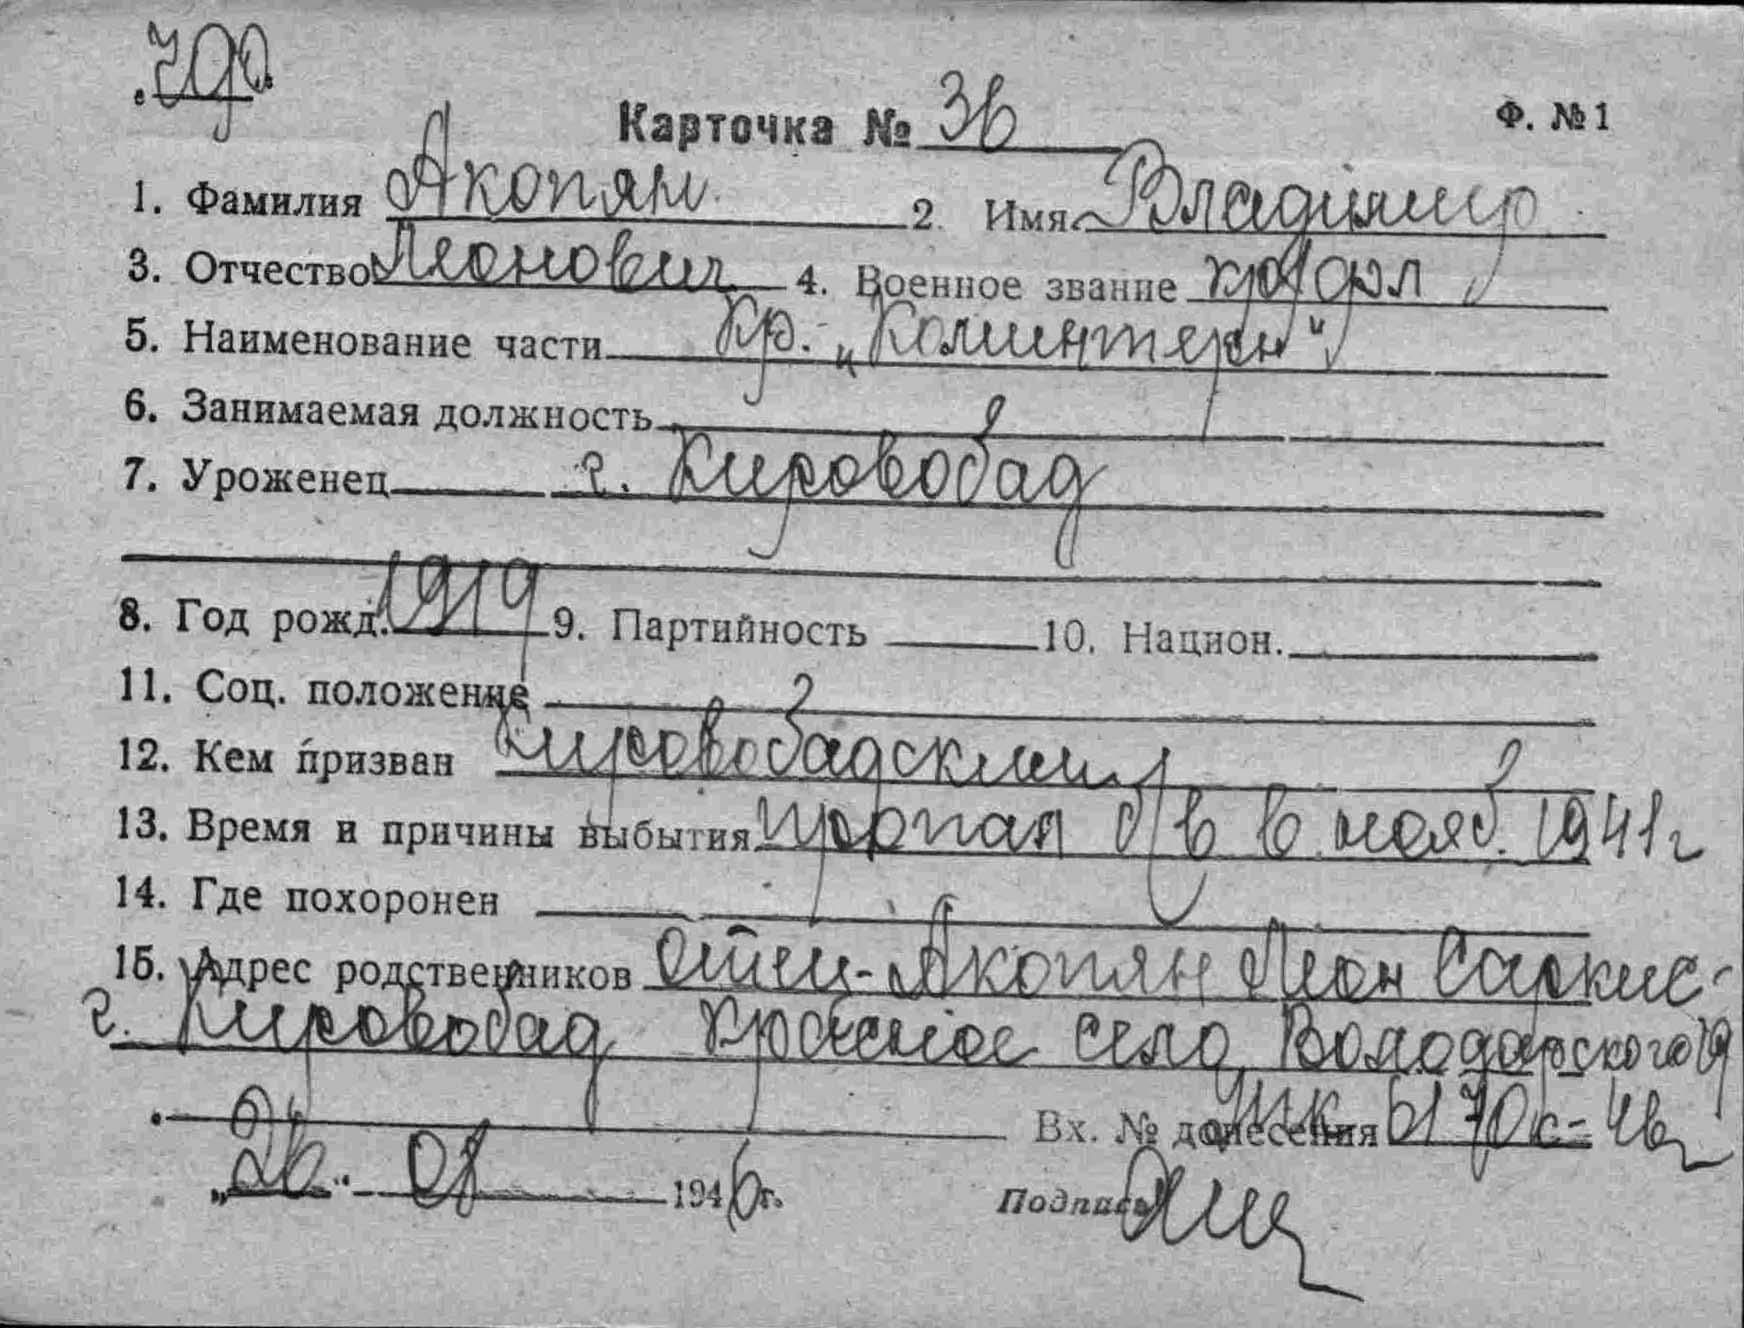 Карточка № 36 Ф. № 1
1. Фамилия Акопян 2. Имя Владимир
3. Отчество Леонович 4. Военное звание кр/фл
5. Наименование части Кр. „Коминтерн"
6. Занимаемая должность
7. Уроженец г. Кировобад
8. Год рожд. 1919 9. Партийность 10. Национ.
11. Соц. положение
12. Кем призван Кировобадским
13. Время и причины выбытия пропал б/в в нояб. 1941 г
14. Где похоронен
15. Адрес родственников отец - Акопян Леон Саркис-
г. Кировобад Красное село Володарского 19
Вх. № донесения 6170
„26" 08 1946 г. Подпись